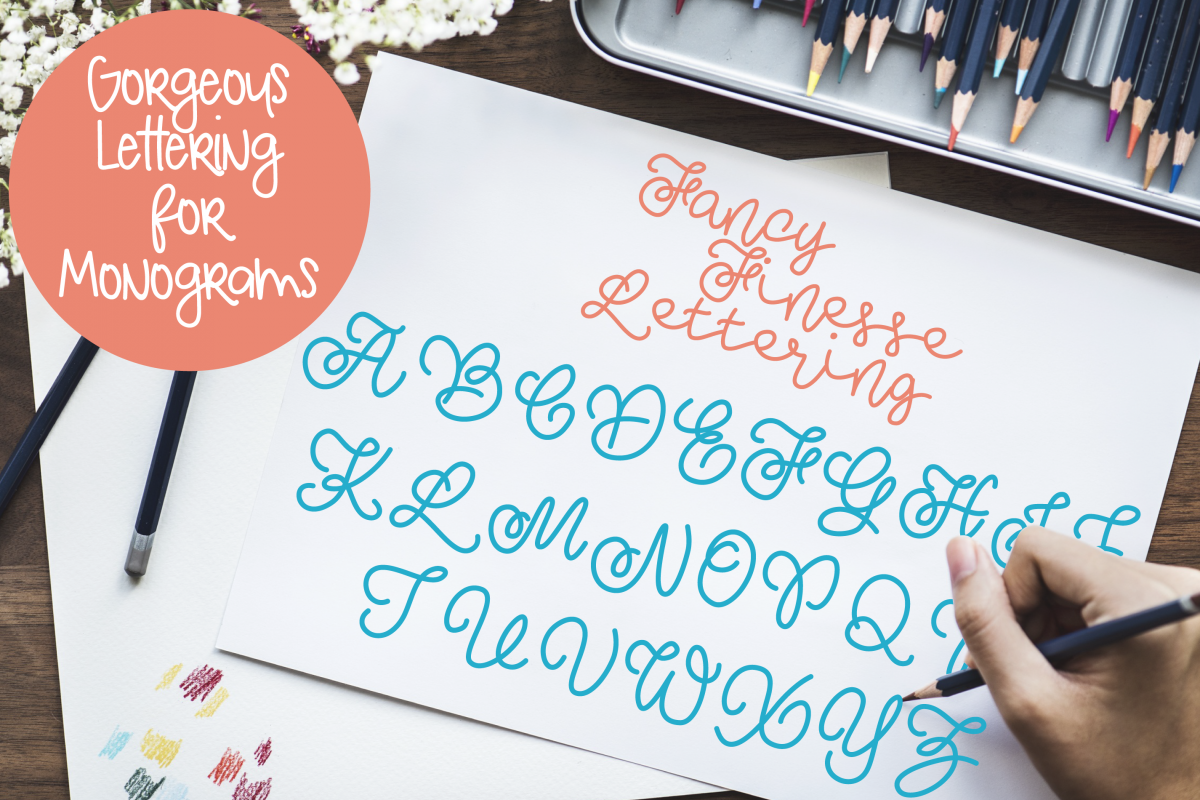 Gorgeous
Lettering
for
Monograms
Fancy
Finesse
Lettering
A B C D E F G H I J
K L M N O P Q
T U V W X Y Z